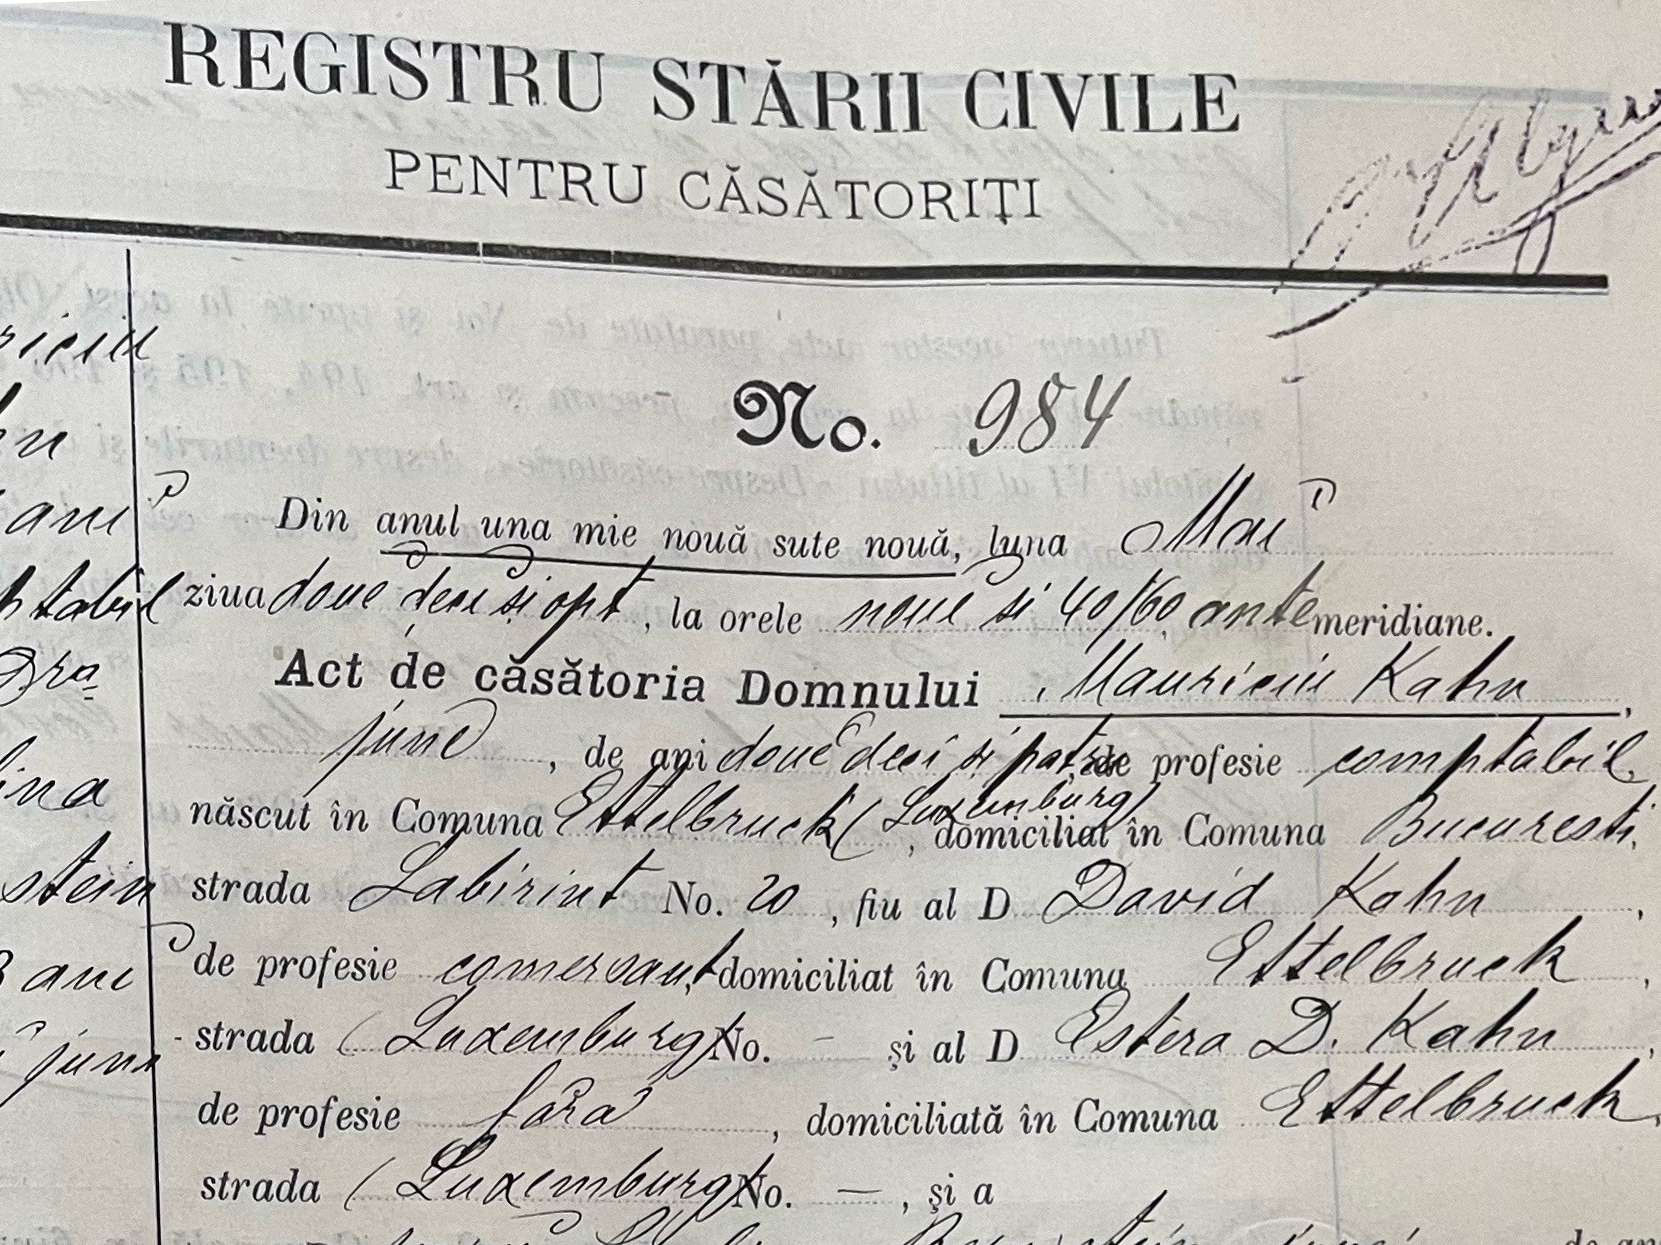 REGISTRU STĂRII CIVILE
PENTRU CĂSĂTORIȚI
No. 984
Din anul una mie nouă sute nouă, luna Mai
ziua doue deci si opt, la orele noue si 40/60 ante meridiane.
Act de căsătoria Domnului Mauriciu Kahn,
june, de ani doue deci si patru de profesie comptabil
născut în Comuna Ettelbruck (Luxemburg), domiciliat în Comuna Bucuresti,
strada Labirint No. 20, fiu al D David Kahn,
de profesie comersant, domiciliat în Comuna Ettelbruck,
strada (Luxemburg) No. — și al D Estera D. Kahn,
de profesie fâra, domiciliată în Comuna Ettelbruck,
strada (Luxemburg) No. —, și a
riciu
ani
tabil
Dra
ina
stein
ani
june